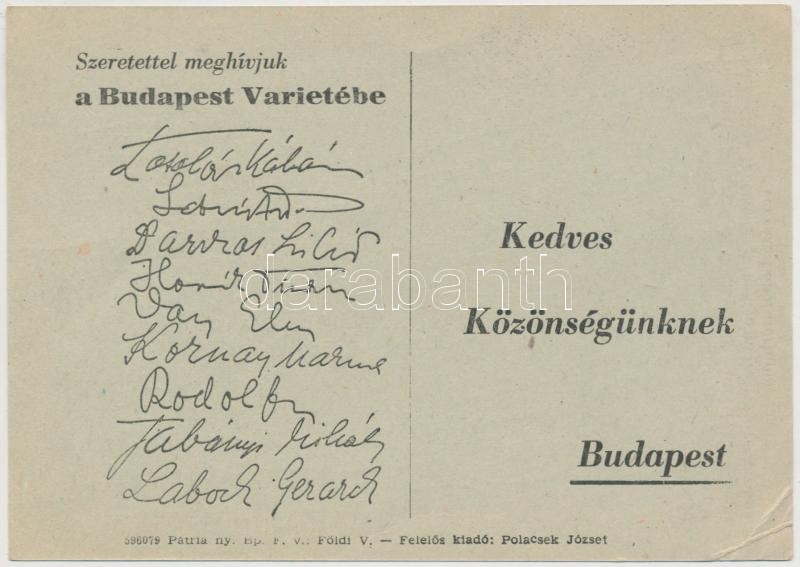 Szeretettel meghívjuk
a Budapest Varietébe
Darvas Lili
Horváth Tivadar
Vay Elly
Kornay Mariann
Rodolfo
Tabányi Mihály
Laboch Gerard
Kedves
Közönségünknek
Budapest
darabanth
596079 Pátria ny. Bp. F. v.: Földi V. — Felelős kiadó: Polacsek József